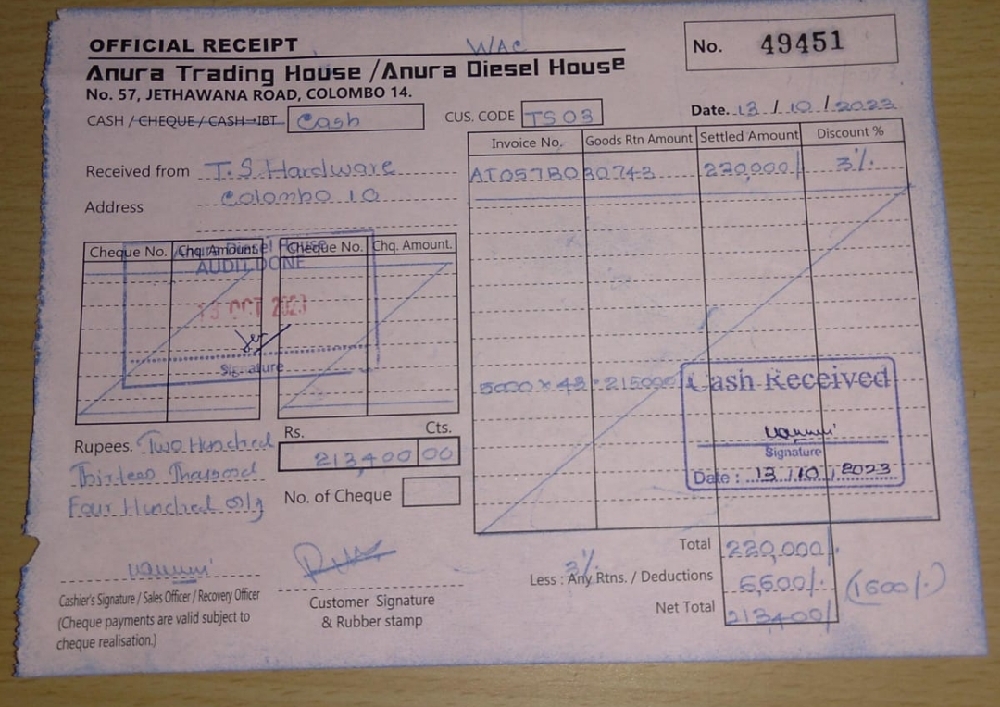 OFFICIAL RECEIPT
WAC
No. 49451
Anura Trading House / Anura Diesel House
No. 57, JETHAWANA ROAD, COLOMBO 14.
CASH / CHEQUE / CASH-IBT Cash
CUS. CODE TS 03
Date. 13 / 10 / 2023
Invoice No. Goods Rtn Amount Settled Amount Discount %
Received from T.S. Hardware
AI057B030743 220,000/- 3%
Address Colombo 10
Cheque No. Chq. Amount Cheque No. Chq. Amount.
Diesel House
AUDIT DONE
13 OCT 2023
Signature
5000 x 43 = 215000
Cash Received
Signature
Date : 13/10/2023
Rupees. Two Hundred
Thirteen Thousand
Four Hundred only
Rs. Cts.
213,400 00
No. of Cheque
Total 220,000/-
3%
Less : Any Rtns. / Deductions 6,600/- (1600/-)
Net Total 213,400/-
Cashier's Signature / Sales Officer / Recovery Officer
(Cheque payments are valid subject to
cheque realisation.)
Customer Signature
& Rubber stamp